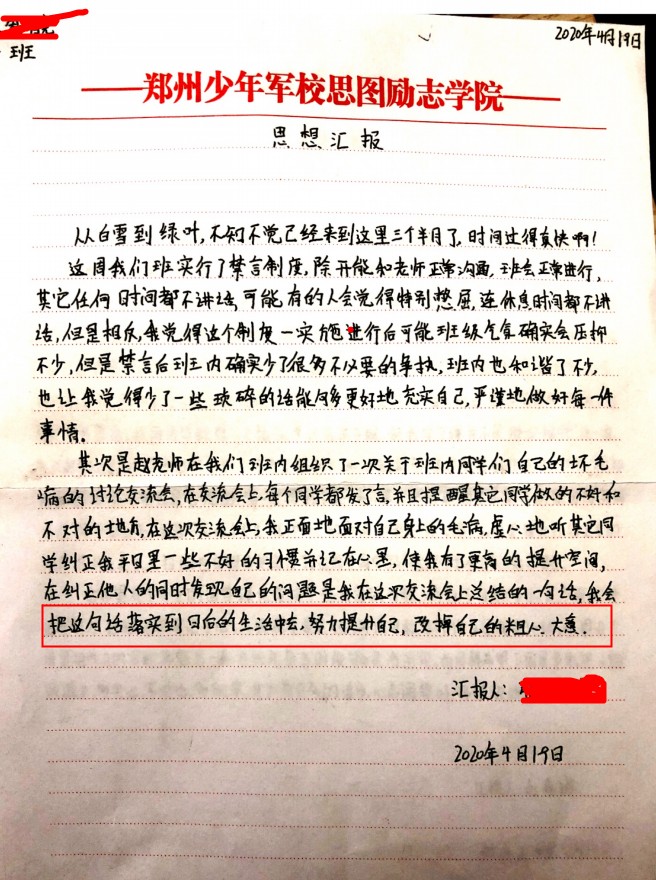 2020年4月19日
班
郑州少年军校思图励志学院
思想汇报
从白雪到绿叶,不知不觉已经来到这里三个半月了,时间过得真快啊!
这周我们班实行了禁言制度,除开能和老师正常沟通,班会正常进行,
其它任何时间都不讲话,可能有的人会觉得特别憋屈,连休息时间都不讲
话,但是相反,我觉得这个制度一实施进行后可能班级气氛确实会压抑
不少,但是禁言后班王内确实少了很多不必要的争执,班内也和谐了不少,
也让我觉得少了一些琐碎的话能间多更好地充实自己,严谨地做好每一件
事情。
其次是赵老师在我们班内组织了一次关于班内同学们自己的坏毛
病的讨论交流会,在交流会上,每个同学都发了言,并且提醒其它同学做的不好和
不对的地方,在这次交流会上,我正面地面对自己身上的毛病,虚心地听其它同
学纠正我平日里一些不好的习惯并记在心里,使我有了更高的提升空间,
在纠正他人的同时发现自己的问题是我在这次交流会上总结的一句话,我会
把这句话落实到日后的生活中去,努力提升自己,改掉自己的粗心大意.
汇报人:
2020年4月19日